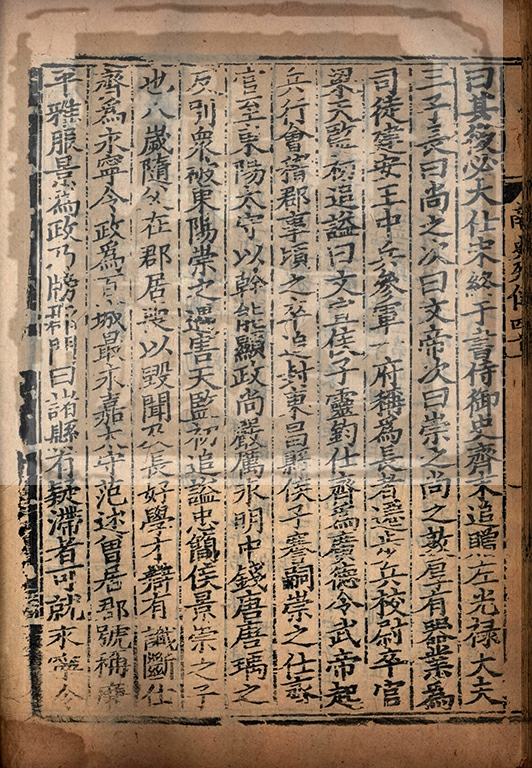 曰其後必大仕宋終于書侍御史齊末追贈左光禄大夫
三子長曰尚之次曰文帝次曰崇之尚之敦厚有器業爲
司徒建安王中兵參軍一府稱爲長者遷步兵校尉卒官
梁天監初追謚曰文宣侯子靈鈞仕齊爲廣德令武帝起
兵行會稽郡事頃之卒追封東昌縣侯子謇嗣崇之仕齊
官至東陽太守以幹能顯政尚嚴厲永明中錢唐唐瑀之
反別衆破東陽崇之遇害天監初追謚忠簡侯景崇之子
也八歲隨父在郡居喪以毀聞及長好學才辯有識斷仕
齊爲永寧令政爲百城最永嘉太守范述曾居郡號稱廉
平雅服景爲政乃牓郡門曰諸縣有疑滯者可就永寧令
南史列傳四十一